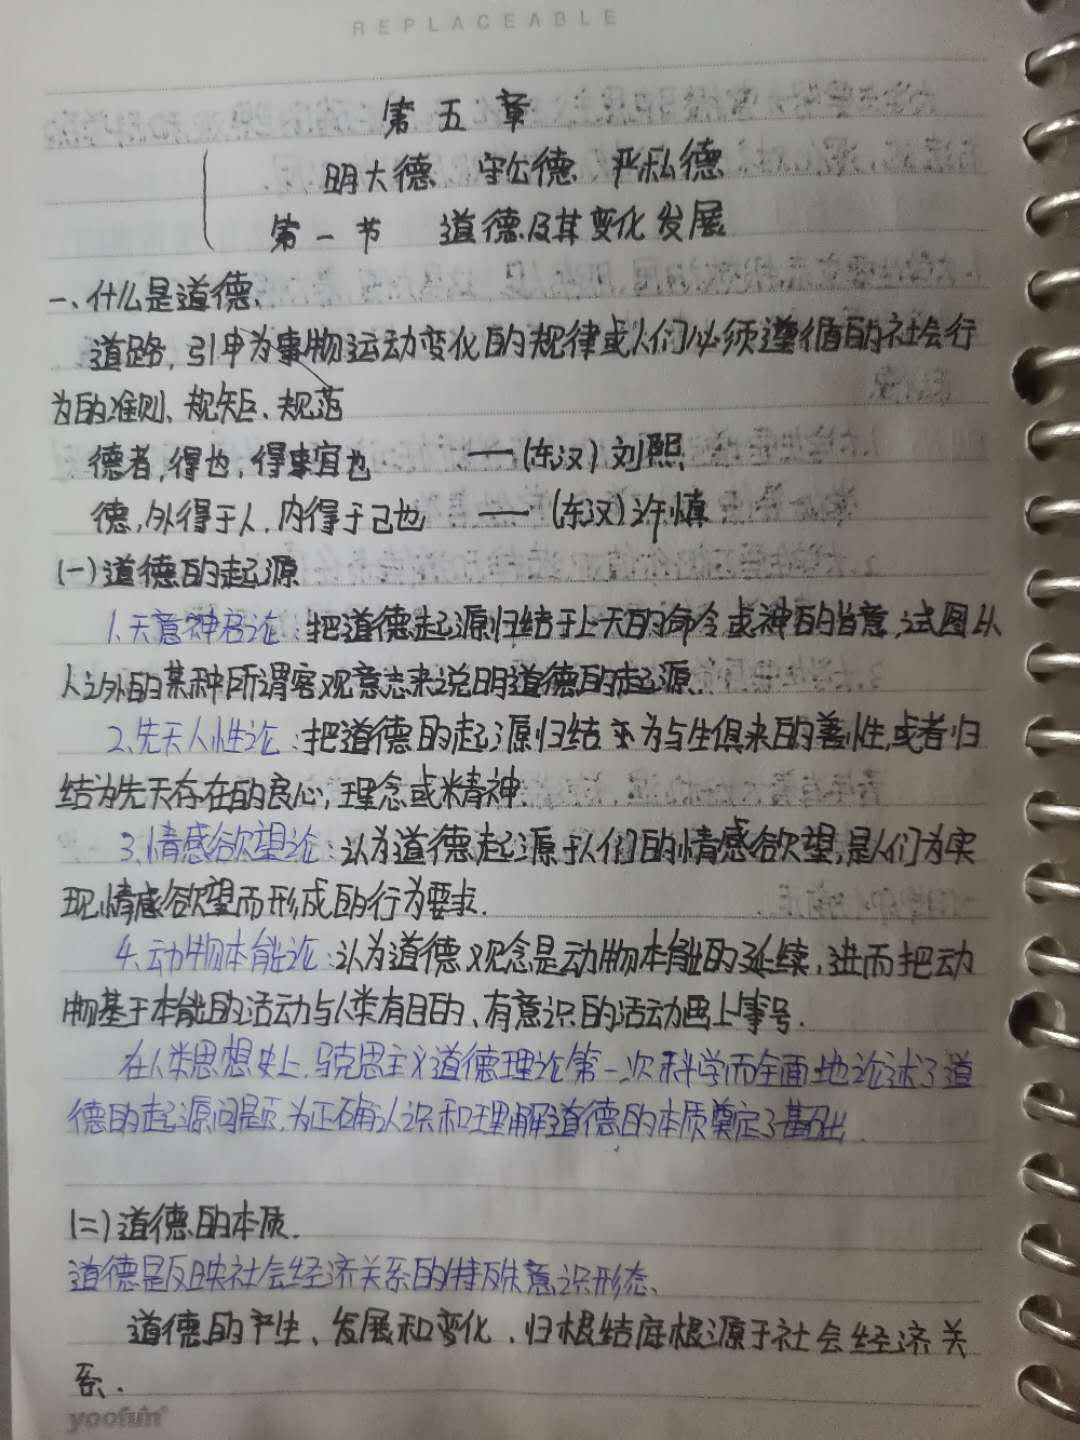 REPLACEABLE
第五章
明大德 守公德 严私德
第一节 道德及其变化发展
一、什么是道德、
道路,引申为事物运动变化的规律或人们必须遵循的社会行
为的准则、规矩、规范
德者,得也,得事宜也 ——(东汉)刘熙
德,外得于人,内得于己也 ——(东汉)许慎
(一)道德的起源
1.天意神启论:把道德起源归结于上天的命令或神的旨意,试图从
人之外的某种所谓客观意志来说明道德的起源.
2.先天人性论:把道德的起源归结为与生俱来的善性,或者归
结为先天存在的良心,理念或精神.
3.情感欲望论:认为道德起源于人们的情感欲望,是人们为实
现情感欲望而形成的行为要求.
4.动物本能论:认为道德观念是动物本能的延续,进而把动
物基于本能的活动与人类有目的、有意识的活动画上等号.
在人类思想史上,马克思主义道德理论第一次科学而全面地论述了道
德的起源问题,为正确认识和理解道德的本质奠定了基础.
(二)道德的本质.
道德是反映社会经济关系的特殊意识形态、
道德的产生、发展和变化,归根结底根源于社会经济关
系.
yoofun